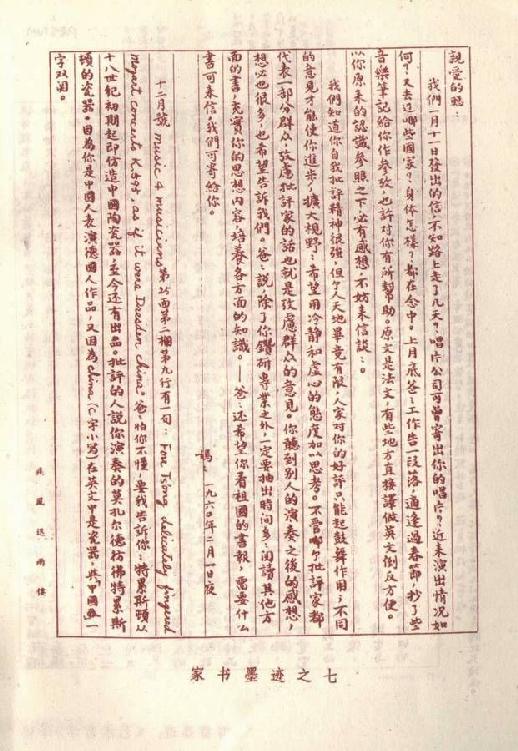 親愛的聪：
我們一月十一日發出的信，不知路上走了几天？唱片公司可曾寄出你的唱片？近来演出情况如
何？又去过哪些國家？身体怎樣？都在念中。上月底爸爸工作告一段落，適逢過春節，抄了些
音樂筆記給你作参攷，也許对你有所幫助。原文是法文，有些地方直接譯做英文倒反方便。
以你原来的認識参照之下，必有感想，不妨来信談談。
我們知道你自我批評精神很强，但个人天地毕竟有限，人家对你的好評只能起鼓舞作用；不同
的意見才能使你進步，擴大視野：希望用冷静和虚心的態度加以思考。不管哪个批評家都
代表一部分群众，攷慮批評家的話也就是攷慮群众的意見。你聽到别人的演奏之後的感想，
想必也很多，也希望告訴我們。爸爸說，除了你鑽研專業之外，一定要抽出時間多多閲讀其他方
面的書，充實你的思想内容，培養各方面的知識。——爸爸还希望你看祖國的書報，需要什么
書可来信，我們可寄給你。
媽媽 一九六〇年二月一日夜
十二月號 Music & Musicians 第25面第二欄第九行有一句：Fou Ts'ong delicately fingered
Mozart concerto K.595, as if it were Dresden China。爸爸怕你不懂，要我告訴你：特累斯頓從
十八世紀初期起即仿造中國陶瓷器，至今还有出品。批評的人說你演奏的莫扎尔德彷彿特累斯
頓的瓷器。因為你是中國人，表演德國人作品，又因為china（C字小寫）在英文中是瓷器，與「中國」一
字双関。
疾風迅雨樓
家书墨迹之七